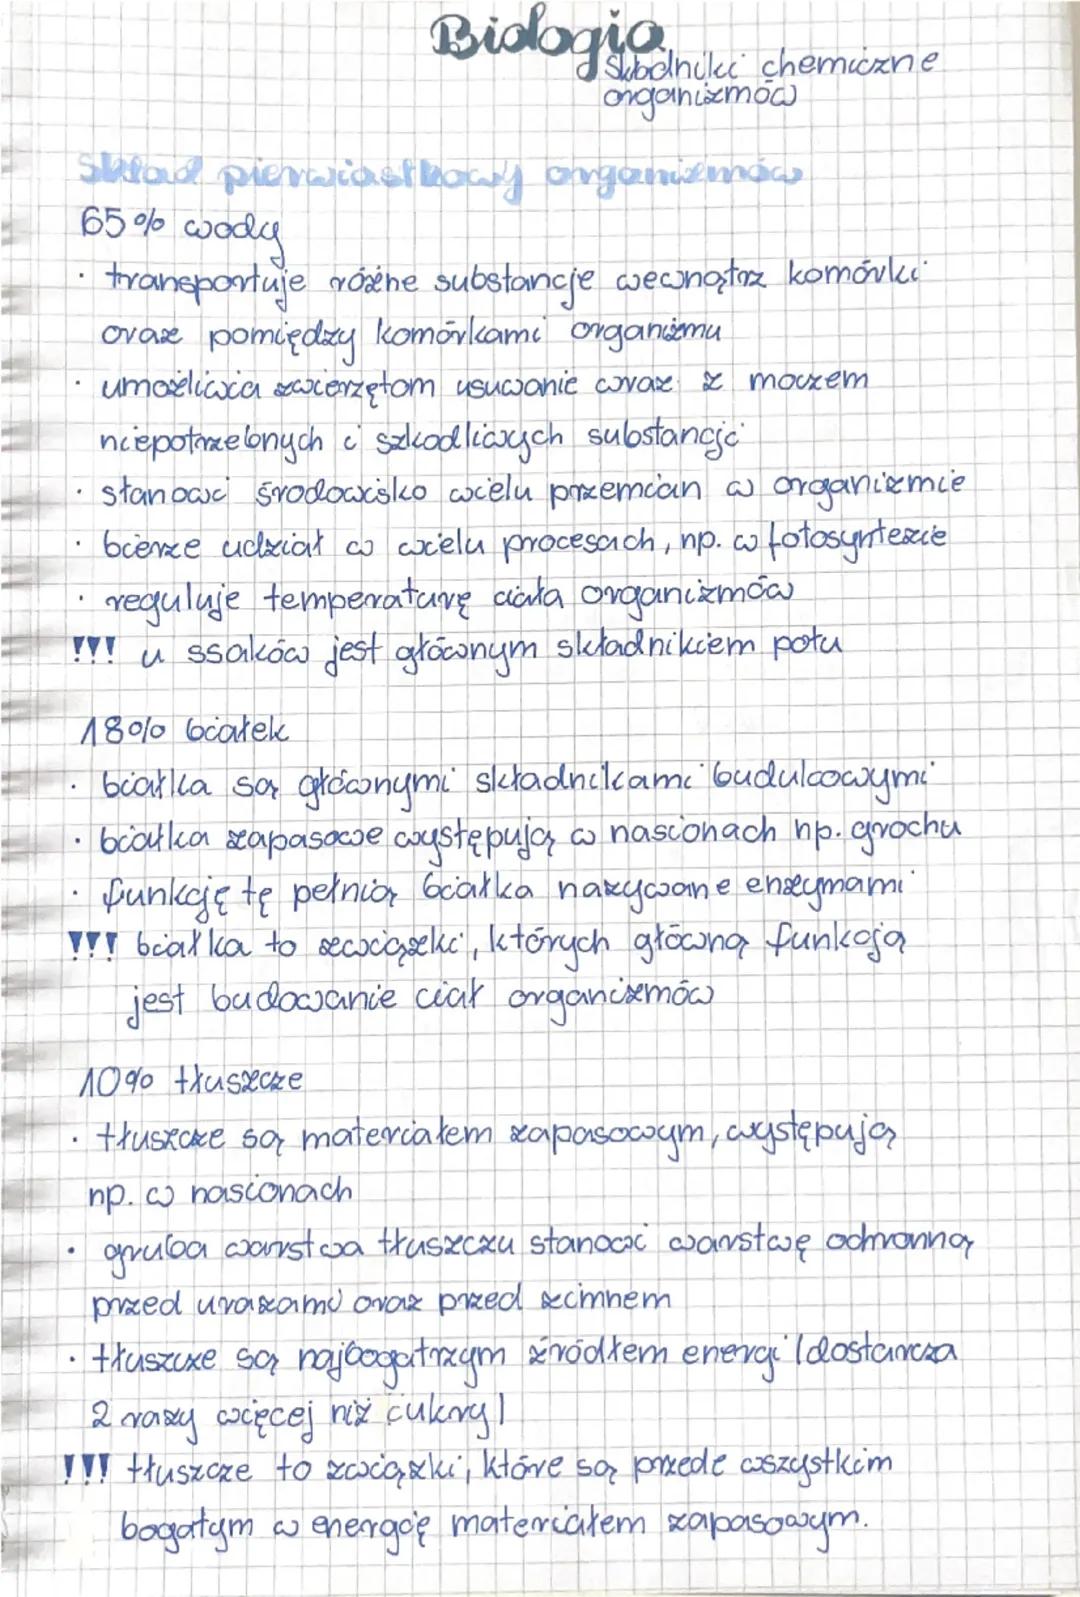 Biologia
Składniki chemiczne
organizmów
Skład pierwiastkowy organizmów
65% wody
· transportuje różne substancje wewnątrz komórki
oraz pomiędzy komórkami organizmu
· umożliwia zwierzętom usuwanie wraz z moczem
niepotrzebnych i szkodliwych substancji
· stanowi środowisko wielu przemian w organizmie
· bierze udział w wielu procesach, np. w fotosyntezie
· reguluje temperaturę ciała organizmów
!!! u ssaków jest głównym składnikiem potu
18% białek
· białka są głównymi składnikami budulcowymi
· białka zapasowe występują w nasionach np. grochu
· funkcję tę pełnią białka nazywane enzymami
!!! białka to związki, których główną funkcją
jest budowanie ciał organizmów
10% tłuszcze
· tłuszcze są materiałem zapasowym, występują
np. w nasionach
· gruba warstwa tłuszczu stanowi warstwę ochronną
przed urazami oraz przed zimnem
· tłuszcze są najbogatrzym źródłem energi (dostarcza
2 razy więcej niż cukry)
!!! tłuszcze to związki, które są przede wszystkim
bogatym w energię materiałem zapasowym.